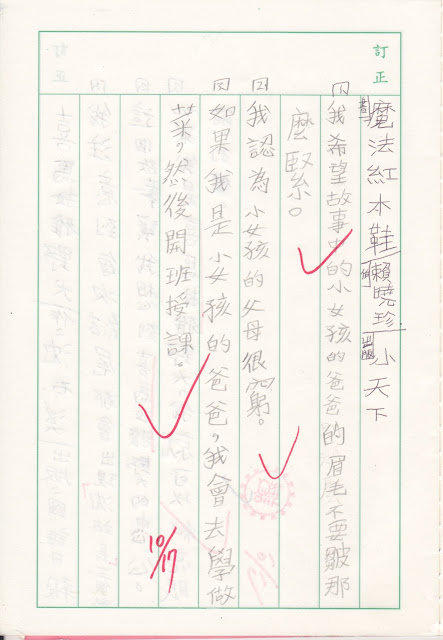 訂正
魔法紅本鞋 賴曉珍 出版 小天下
我希望故事中的小女孩的爸爸的眉毛不要皺那
麼緊。
我認為小女孩的父母很窮。
如果我是小女孩的爸爸，我會去學做
菜，然後開班授課。
10/17